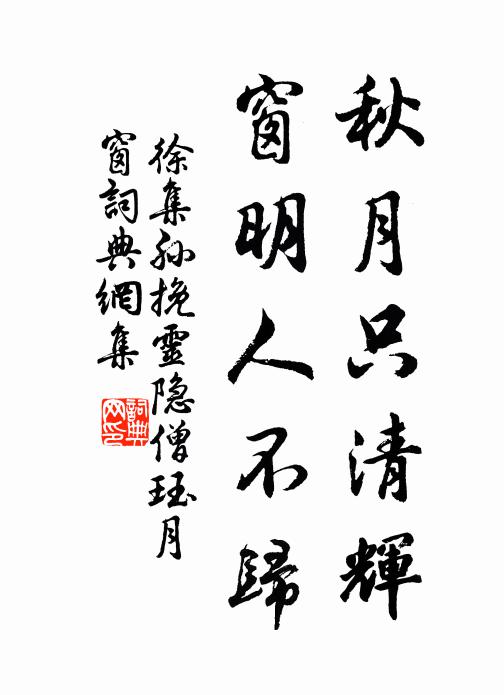 秋月只清輝
窗明人不歸
徐集孙挽靈隐僧珏月
窗詞典網集
詞典
网印